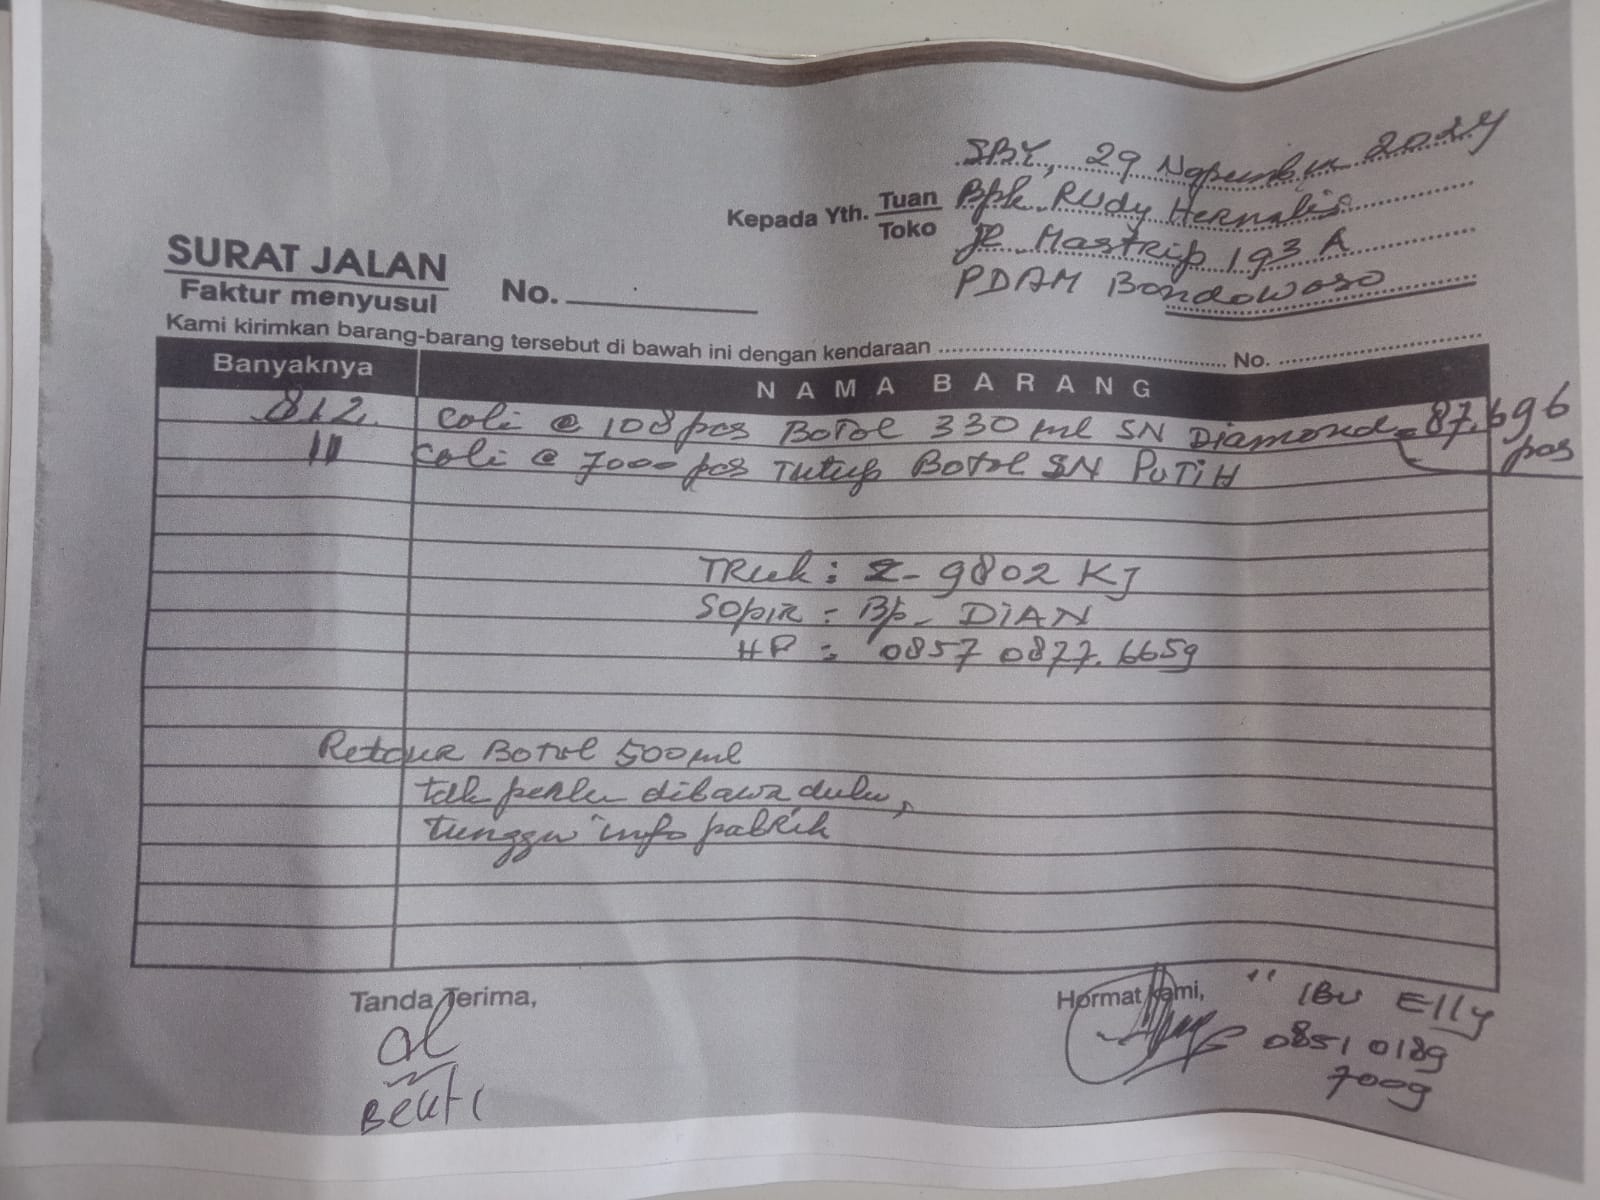 SBY, 29 Nopember 2024
Kepada Yth. Tuan Toko
Bpk Rudy Hernalis
Jl Mastrip 193 A
PDAM Bondowoso
SURAT JALAN
Faktur menyusul
No.
Kami kirimkan barang-barang tersebut di bawah ini dengan kendaraan ........ No. ........
Banyaknya NAMA BARANG
812 coli @ 108 pcs Botol 330 ml SN Diamond = 87.696 pcs
11 coli @ 7000 pcs Tutup Botol SN PUTIH
TRuk : 9802 KJ
Sopir : Bp. DIAN
HP : 0857 0877. 6659
Retour Botol 500 ml
tdk perlu dibawa dulu,
tunggu info pabrik
Tanda Terima, Hormat kami,
" IBu Elly
0851 0189
7009